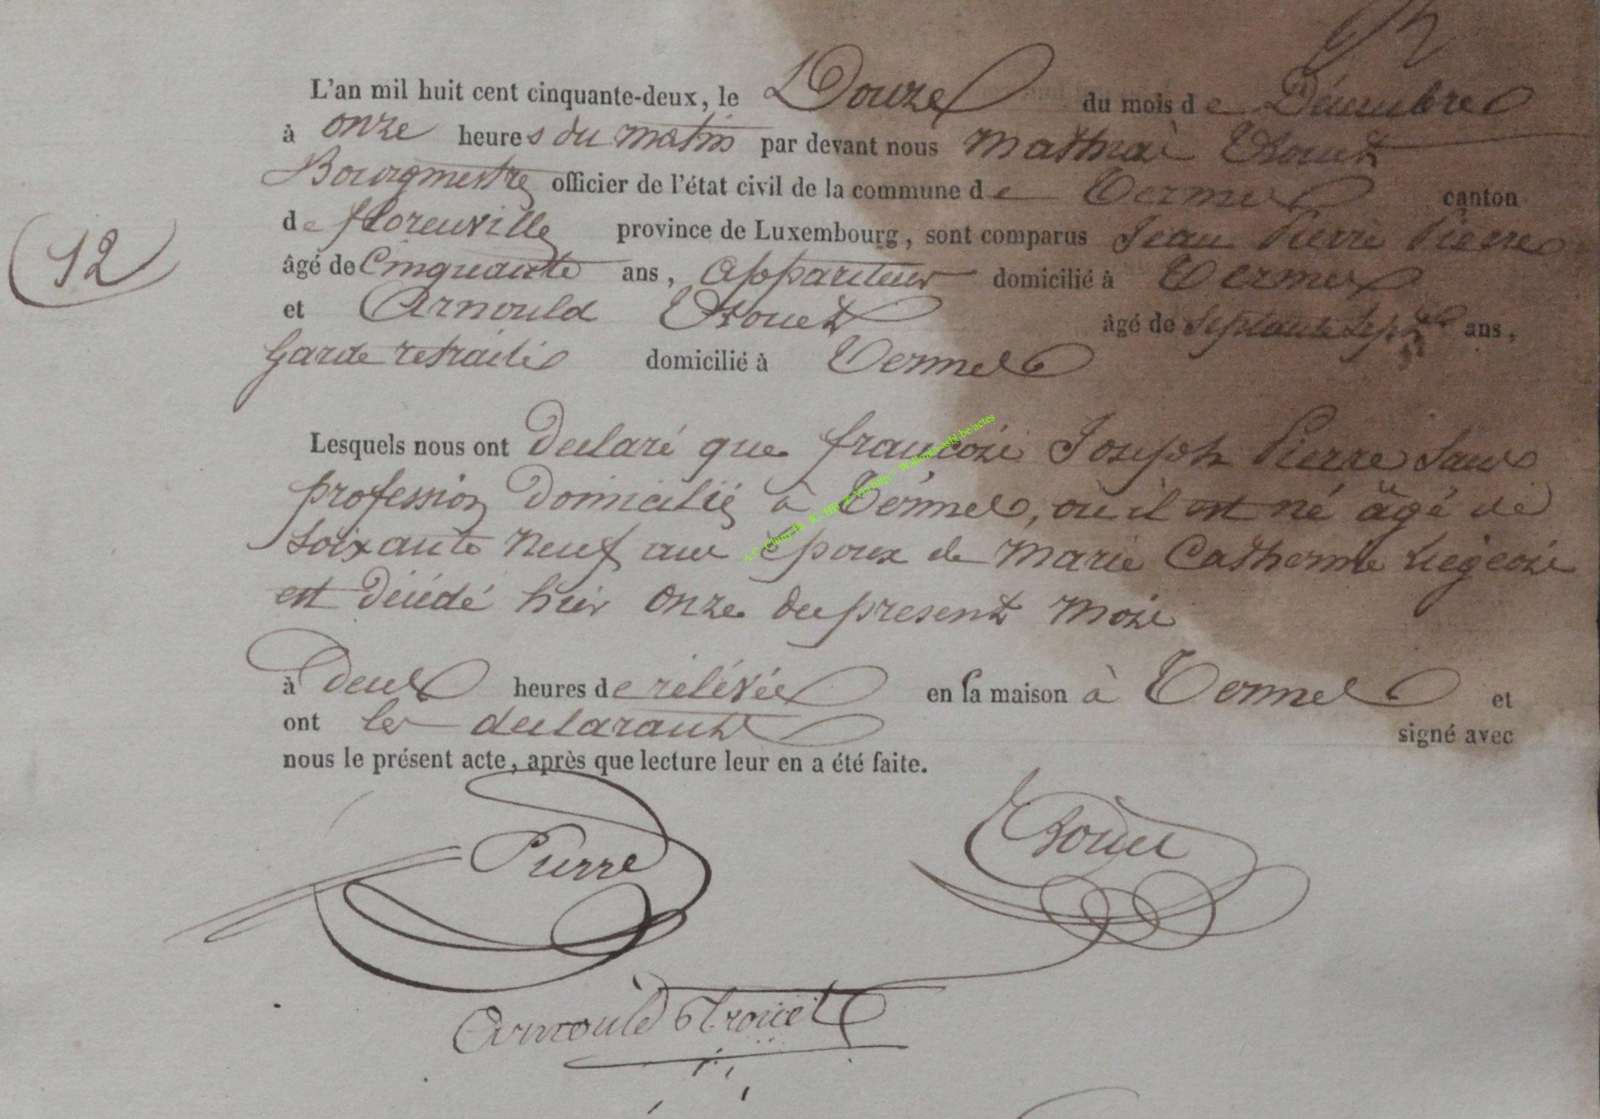 L'an mil huit cent cinquante-deux, le Douze du mois de Décembre
à onze heures du matin par devant nous Mathias Trouet
Bourgmestre officier de l'état civil de la commune de Termes canton
de florenville province de Luxembourg, sont comparus Jean Pierre Pierre
âgé de Cinquante ans, appariteur domicilié à Termes
et Arnould Trouet âgé de Septante Sept ans,
Garde retraité domicilié à Termes
12
Lesquels nous ont déclaré que françois Joseph Pierre Sans
profession domicilié à Termes, où il est né âgé de
soixante neuf ans époux de Marie Catherine Liegeois
est décédé hier onze du présent mois
à deux heures de rélévée en sa maison à Termes et
ont les déclarants signé avec
nous le présent acte, après que lecture leur en a été faite.
Pierre Trouet
Arnould Trouet